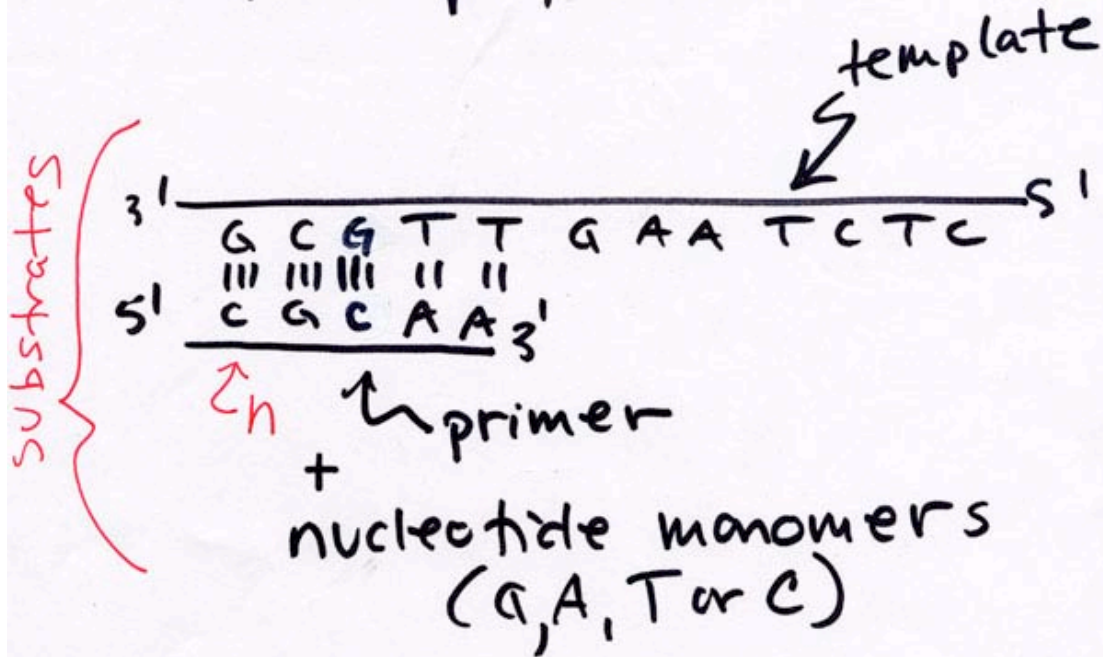 template
substrates
3' 5'
G C G T T G A A T C T C
5' C G C A A 3'
n primer
+
nucleotide monomers
(G, A, T or C)